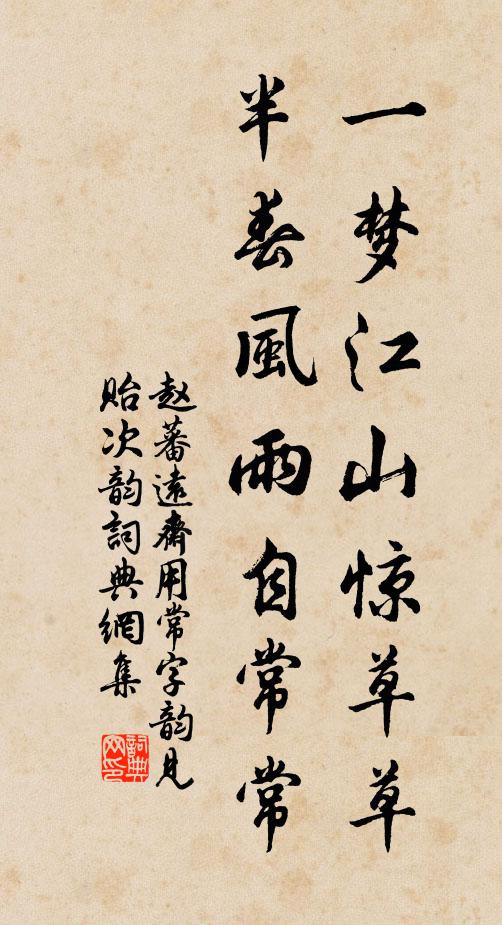 一梦江山惊草草
半春風雨自常常
赵蕃遠齋用常字韵見
贻次韵詞典網集
詞典
网印